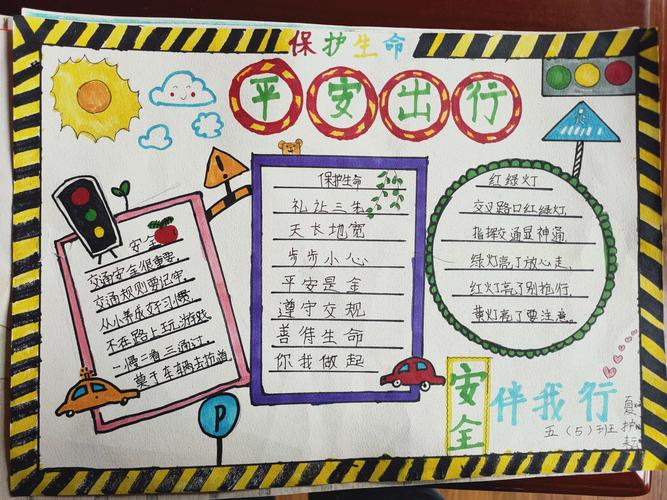 保护生命
平安出行
安全
交通安全很重要,
交通规则要记牢,
从小养成好习惯,
不在路上玩游戏
一慢二看三通过,
莫于车辆去抢道
保护生命
礼让三先
天长地宽
步步小心
平安是金
遵守交规
善待生命
你我做起
红绿灯
交叉路口红绿灯,
指挥交通显神通,
绿灯亮了放心走,
红灯亮了别抢行,
黄灯亮了要注意。
P
安全
伴我行
五(5)班
夏